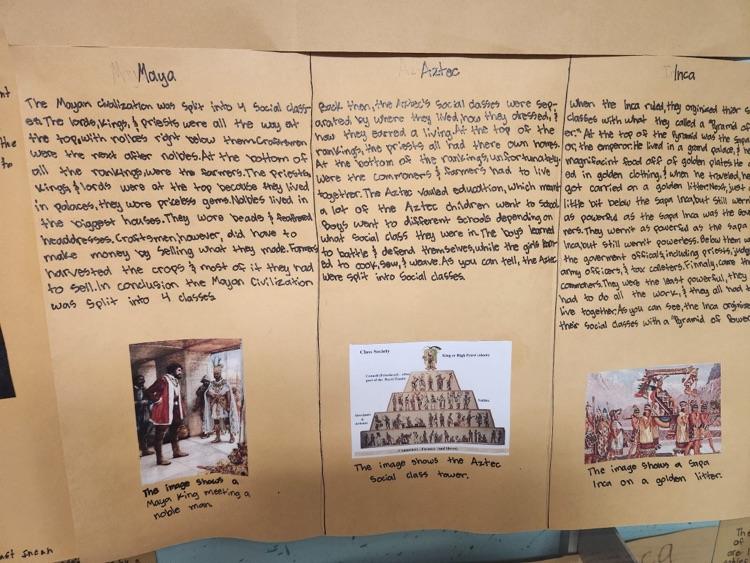 Maya
The Mayan civilization was split into 4 social class-
es. The lords, kings, & priests were all the way at
the top, with nolbes right below them. Craftsmen
were the next after nolbes. At the bottom of
all the rankings, were the farmers. The priests,
kings, & lords were at the top because they lived
in palaces, they wore priceless gems. Nolbles lived in
the biggest houses. They wore beads & feathered
headdresses. Craftsmen, however, did have to
make money by selling what they made. Farmers
harvested the crops & most of it they had
to sell. In conclusion the Mayan Civilization
was split into 4 classes.
The image shows a
Maya King meeting a
noble man.
Aztec
Back then, the Aztec's social classes were sep-
arated by where they lived, how they dressed, &
how they earned a living. At the top of the
rankings, the priests all had there own homes.
At the bottom of the rankings, unfortunately,
were the commoners & farmers had to live
together. The Aztec valued education, which meant
a lot of the Aztec children went to school.
Boys went to different schools depending on
what social class they were in. The boys learned
to battle & defend themselves, while the girls learn-
ed to cook, sew, & weave. As you can tell, the Aztec
were split into Social classes.
Class Society
King or High Priest
Nobles
The image shows the Aztec
Social class tower.
Inca
When the Inca ruled, they orginized their s
classes with what they called a "Pyramid o
er." At the top of the Pyramid was the Sapa
or, the emperor. He lived in a grand palace, & he
magnifacint food off of golden plates. He
ed in golden clothing, & when he traveled, he
got carried on a golden litter. Next, just
little bit below the sapa Inca, but still wern't
as powerful as the sapa Inca was the Gove
ners. They wern't as powerful as the sapa
Inca, but still wern't powerless. Below them
the goverment officals, including priests, judges
army officers, & tax coleters. Finnaly, came th
commoners. They were the least powerful, they
had to do all the work, & they all had t
live together. As you can see, the Inca orginize
their social classes with a "Pyramid of Power
The image shows a Sapa
Inca on a golden litter.